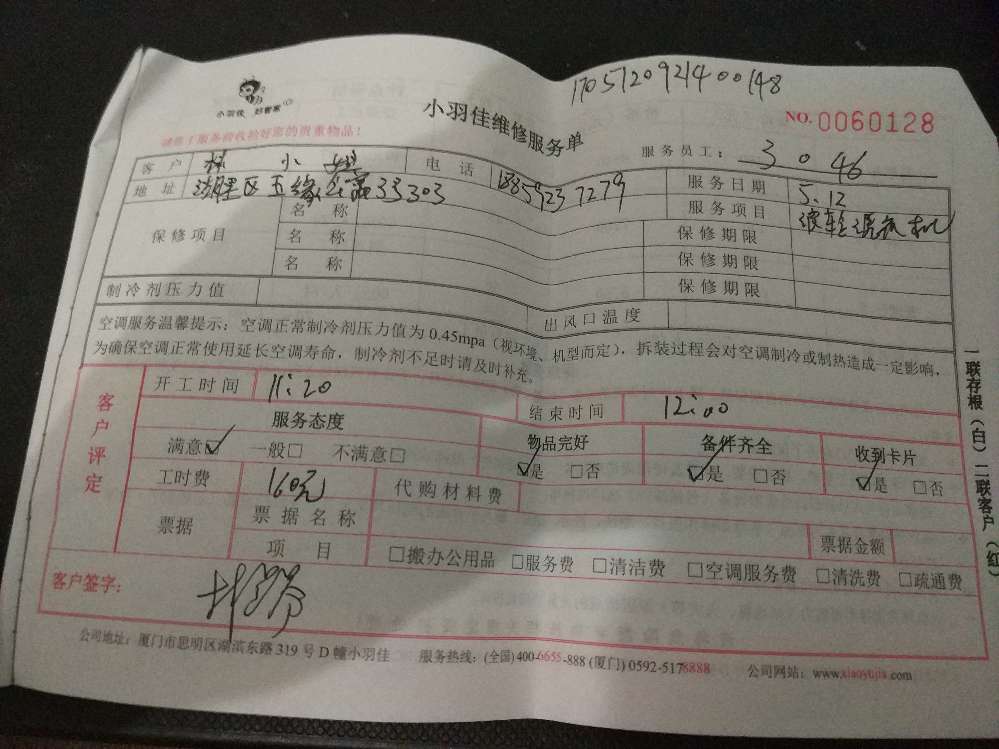 170512092400148
小羽佳 好管家
小羽佳维修服务单
NO. 0060128
请您于服务前收捡好您的贵重物品！
服务员工： 3046
客户 林小 电话 18859237279 服务日期 5.12
地址 湖里区五缘 33303 服务项目 机
保修项目 名称 保修期限
名称 保修期限
名称 保修期限
制冷剂压力值 出风口温度
空调服务温馨提示：空调正常制冷剂压力值为 0.45mpa（视环境、机型而定），拆装过程会对空调制冷或制热造成一定影响，
为确保空调正常使用延长空调寿命，制冷剂不足时请及时补充。
客户评定
开工时间 11:20 结束时间 12:00
服务态度 物品完好 备件齐全 收到卡片
满意☑ 一般□ 不满意□ ☑是 □否 ☑是 □否 ☑是 □否
工时费 160元 代购材料费
票据 票据名称 票据金额
项目 □搬办公用品 □服务费 □清洁费 □空调服务费 □清洗费 □疏通费
客户签字：
公司地址：厦门市思明区湖滨东路 319 号 D 幢小羽佳 服务热线：(全国) 400-6655-888 (厦门) 0592-5178888 公司网站：www.xiaoyujia.com
一联存根（白）二联客户（红）